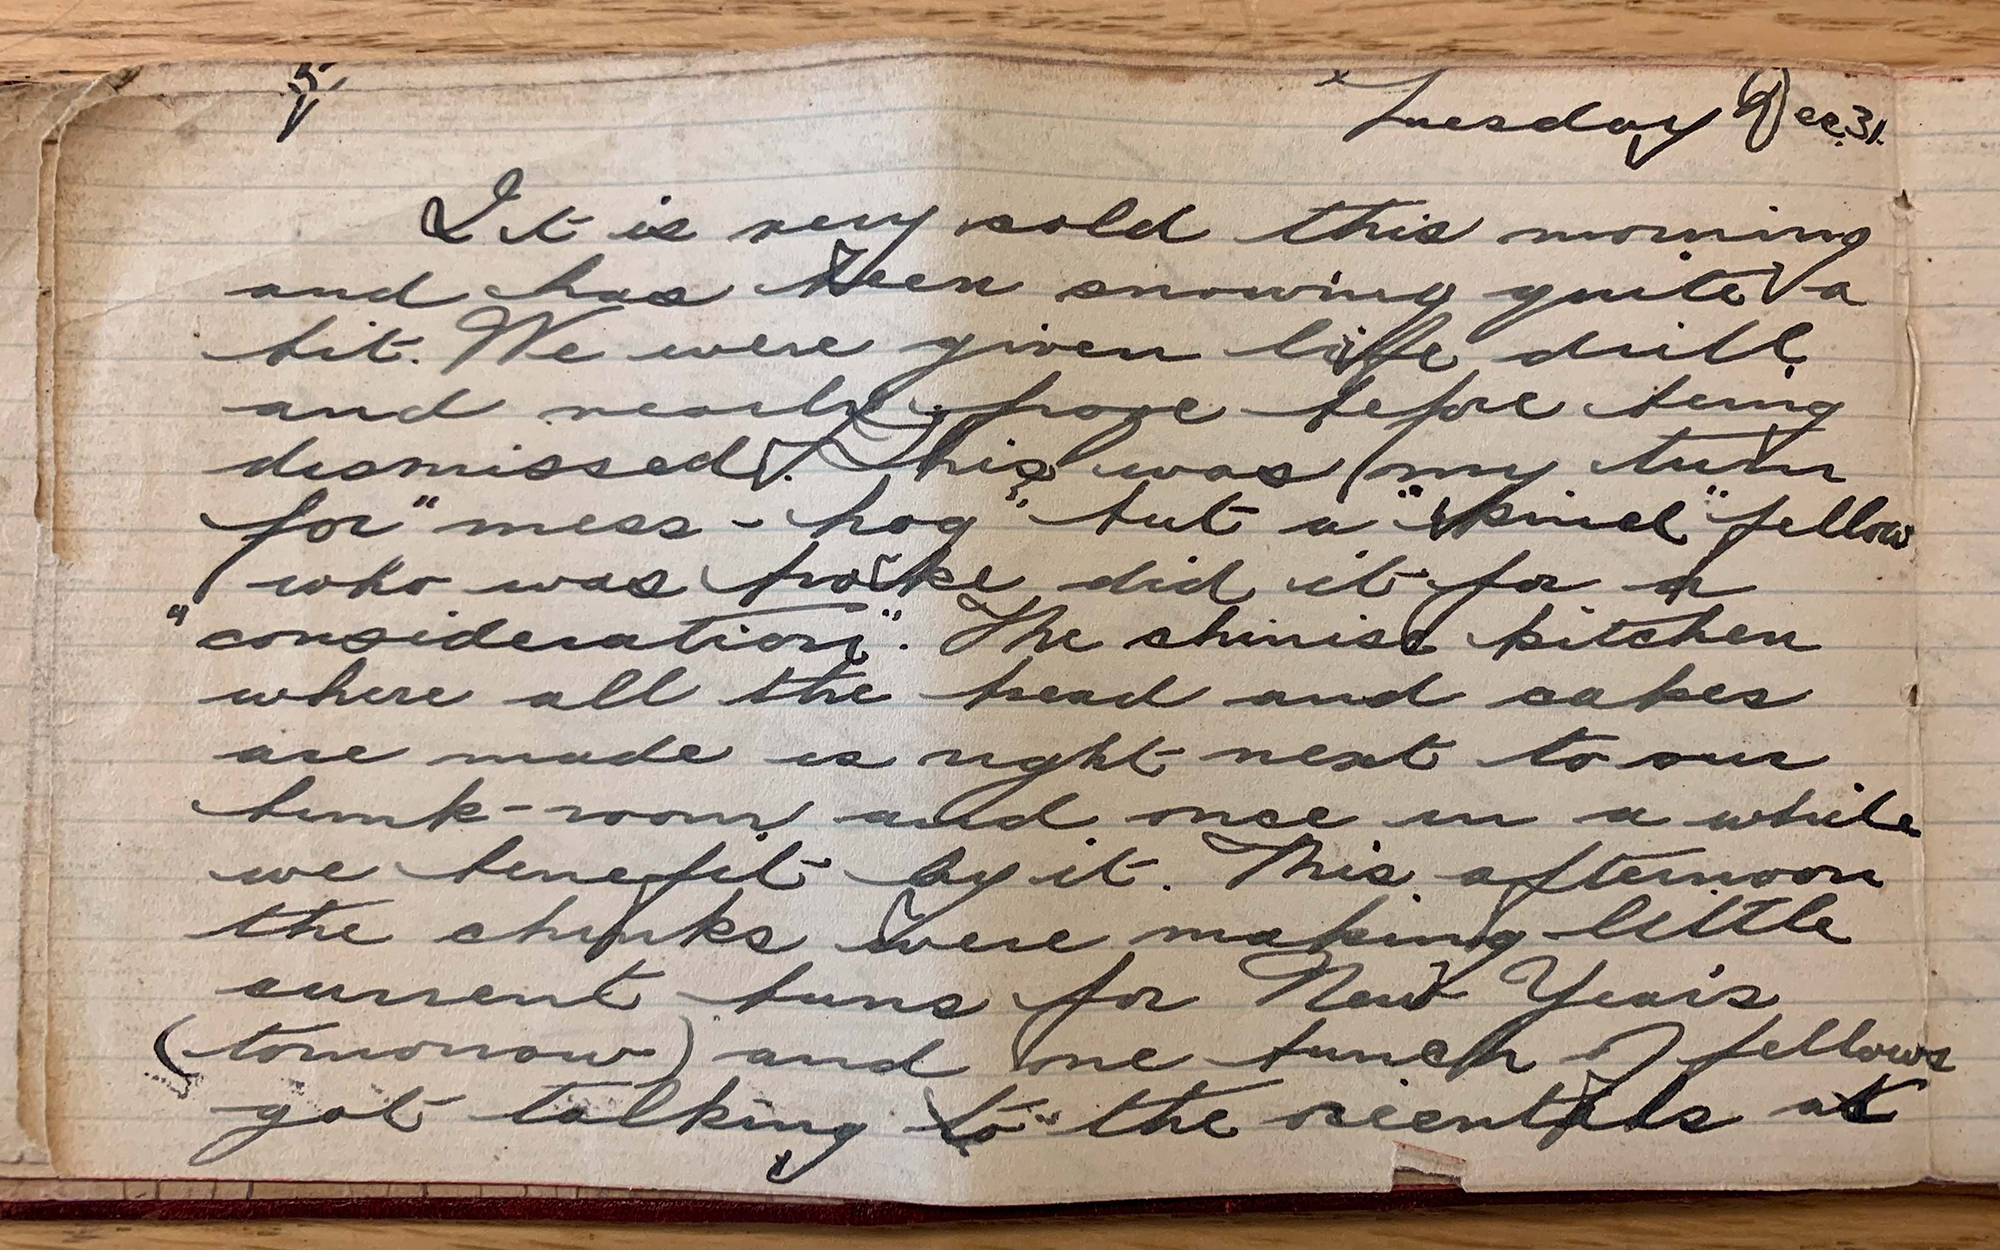 Tuesday Dec. 31.
It is very cold this morning
and has been snowing quite a
bit. We were given life drill
and nearly froze before being
dismissed. This was my turn
for "mess-hog" but a "kind" fellow
who was broke did it for a
"consideration". The chinise kitchen
where all the bread and cakes
are made is right next to our
bunk-room and once in a while
we benefit by it. This afternoon
the chinks were making little
current buns for New Year's
(tomorrow) and one bunch of fellows
got talking to the orientals at